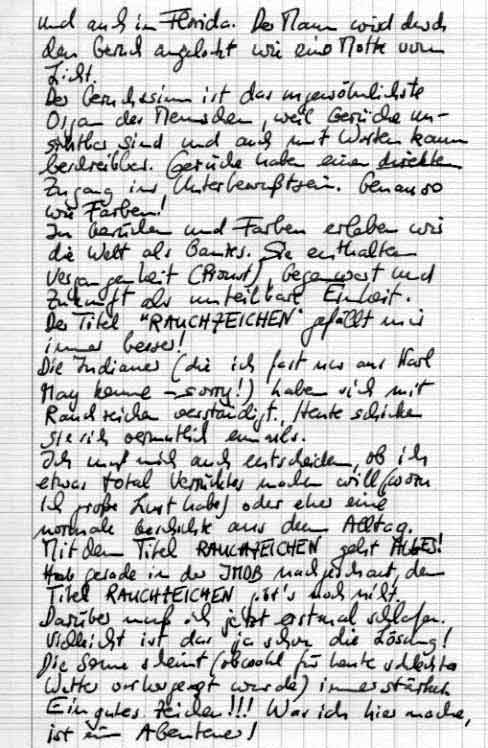 und auch in Florida. Der Mann wird durch
den Geruch angelockt wie eine Motte vom
Licht.
Der Geruchssinn ist das ungewöhnlichste
Organ des Menschen, weil Gerüche un-
sichtbar sind und auch mit Worten kaum
beschreibbar. Gerüche haben einen direkten
Zugang ins Unterbewußtsein. Genau so
wie Farben!
In Gerüchen und Farben erleben wir
die Welt als Ganzes. Sie enthalten
Vergangenheit (Proust), Gegenwart und
Zukunft als unteilbare Einheit.
Der Titel "RAUCHZEICHEN" gefällt mir
immer besser!
Die Indianer (die ich fast nur aus Karl
May kenne – sorry!) haben sich mit
Rauchzeichen verständigt. Heute schicken
sie sich vermutlich emails.
Ich muß mich auch entscheiden, ob ich
etwas total Verrücktes machen will (wozu
ich große Lust habe) oder eher eine
normale Geschichte aus dem Alltag.
Mit dem Titel RAUCHZEICHEN geht ALLES!
Hab gerade in der IMDB nachgeschaut, den
Titel RAUCHZEICHEN gibt's noch nicht.
Darüber muß ich jetzt erstmal schlafen.
Vielleicht ist das ja schon die Lösung!
Die Sonne scheint (obwohl für heute schlechtes
Wetter vorhergesagt wurde) immer stärker.
Ein gutes Zeichen!!! Was ich hier mache,
ist ein Abenteuer!